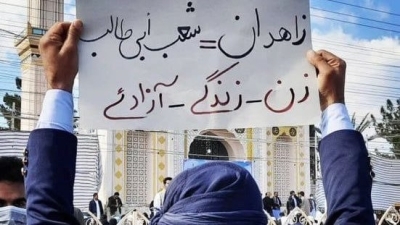 زاهدان = شعب أبی طالب
زن - زندگے - آزادے